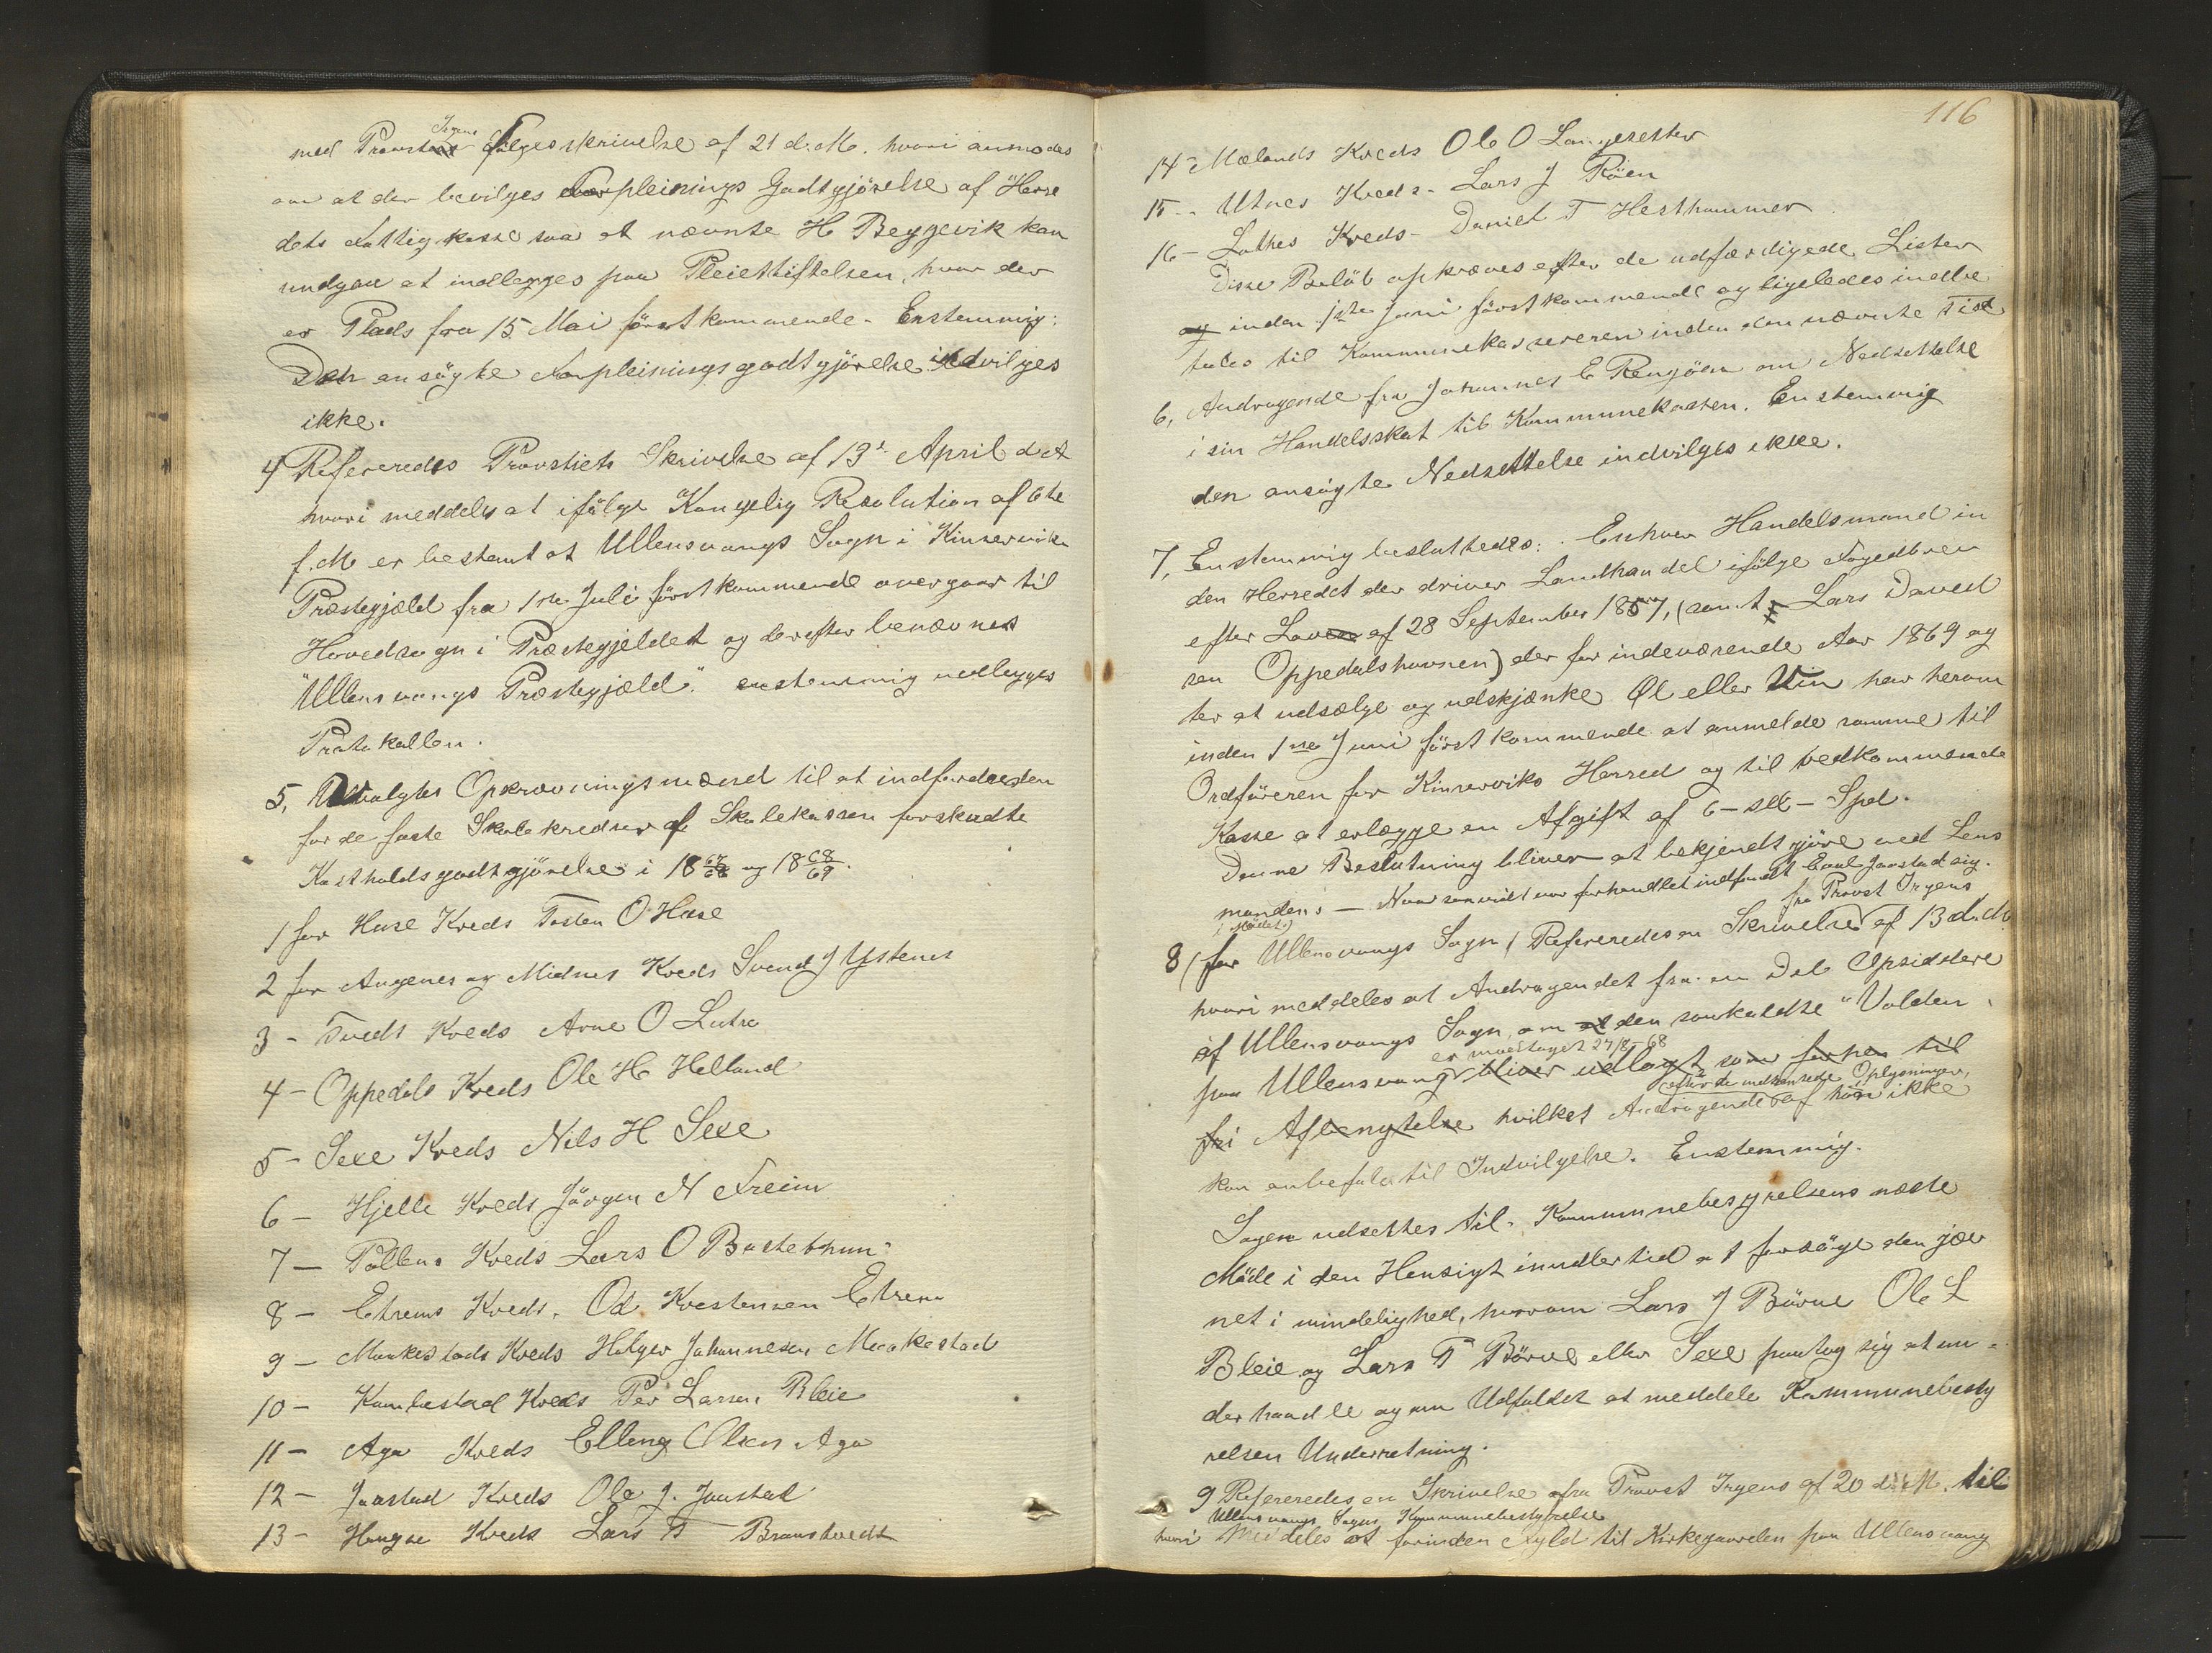 med Provst Irgens Følgeskrivelse af 21 d. M. hvori anmodes
om at der bevilges Forpleinings Godtgjörelse af Herre
dets Fattigkasse saa at nævnte H Beggevik kan
undgaa at indlægges paa Pleiestiftelsen, hvor der
er Plads fra 15 Mai förstkommende. Enstemmig:
Den ansögte Forpleiningsgodtgjörelse indvilges
ikke.
4 Refereredes Provstiets Skrivelse af 13de April d. A
hvori meddeles at ifölge Kongelig Resolution af 6te
f. M. er bestemt at Ullensvangs Sogn i Kinservik
Præstegjæld fra 1ste Juli förstkommende overgaar til
Hovedsogn i Præstegjeldet og derefter benævnes
"Ullensvangs Præstegjæld". enstemmig vedlegges
Protokollen.
5, Udvalgtes Opkrævningsmænd til at indfordre den
for de faste Skolekredser af Skolekassen forskudte
Kostholdsgodtgjörelse i 18 67/68 og 18 68/69.
1 for Huse Kreds Tosten O Huse
2 for Augenes og Midnes Kreds Svend J Ystenes
3 - Tvedt Kreds Arne O Lutro
4 - Oppedals Kreds Ole H Helland
5 - Sexe Kreds Nils H Sexe
6 - Hjelle Kreds Jörgen N Freim
7 - Tollens Kreds Lars O Bustethun
8 - Eitrems Kreds. Od Kostensen Eitrem
9 - Maakestads Kreds Holger Johannesen Maakestad
10 - Kambestad Kreds Per Larsen Bleie
11 - Aga Kreds Elling Olsen Aga
12 - Jaastad Kreds Ola J. Jaastad
13 - Haugse Kreds Lars T Bramtvedt
116
14 - Mælands Kreds Ole O Langesetter
15 - Utnes Kreds - Lars J Röen
16 - Lothes Kreds - Daniel T Hesthammer
Disse Beløb opkræves efter de udfærdigede Lister
og inden 1ste Juni först kommende og ligeledes indbe
tales til Kommunekassereren inden den nævnte Tid
6, Andragende fra Johannes E Rengöen om Nedsettelse
i sin Handelsskat til Kommunekassen. Enstemmig
den ansögte Nedsettelse indvilges ikke.
7, Enstemmig besluttedes: Enhver Handelsmand in
den Herredet der driver Landhandel ifölge Fogedbrev
efter Loven af 28 September 1857, (samt Lars David
sen Oppedalshavnen) der for indeværende Aar 1869 ag
ter at udsælge og udskjænke Øl eller Vin har herom
inden 1ste Juni först kommende at anmelde samme til
Ordföreren for Kinserviks Herred og til vedkommende
Kasse at erlægge en Afgift af 6 - sex - Spd.
Denne Beslutning bliver at bekjendtgjöre ved Lens
manden. - Naar saavidt var forhandlet indfandt Jaastad sig.
i Mödet)
fra Provst Irgens
8 (for Ullensvangs Sogn) Refereredes en Skrivelse af 13 d. M.
hvori meddeles at Andragendet fra en Del Opsiddere
af Ullensvangs Sogn om at den saakaldte "Volden
er modtaget 27/8-68
paa Ullensvang bliver udlagt som forhen til
efter de indhentede Oplysninger,
fri Afbenytelse hvilket Andragende af ham ikke
kan anbefales til Indvilgelse. Enstemmig.
Sagen udsettes til Kommunebestyrelsens næste
Möde i den Hensigt imidlertid at forsöge den jæv
net i mindelighed, hvorom Lars J Börve Ole L
Bleie og Lars T Börve eller Sexe paatog sig at un
derhandle og om Udfaldet at meddele Kommunebesty
relsen Underretning.
9 Refereredes en Skrivelse fra Provst Irgens af 20 d. M. til
Ullensvangs Sogns Kommunebestyrelse
hvori Meddeles at forinden Fyld til Kirkegaarden paa Ullensvang